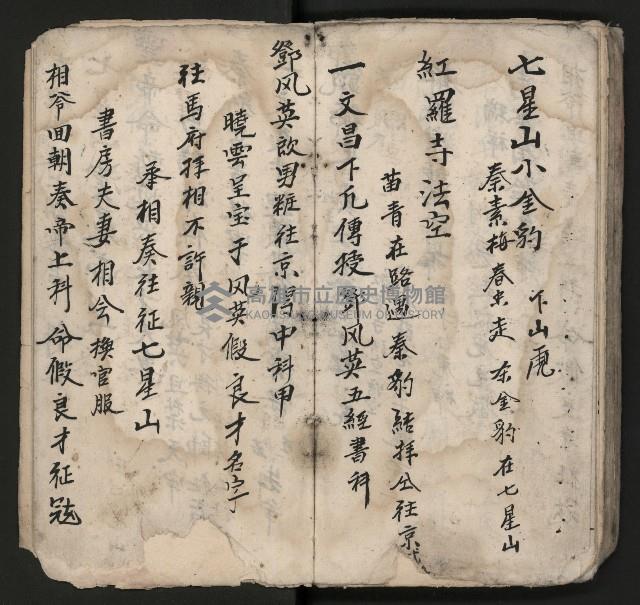 七星山小金豹 下山虎
秦素梅春忠走 金豹在七星山
紅羅寺法空
苗青在路遇秦豹結拜 往京
一文昌下凡傳授鄧风英五經書科
鄧风英改男粧往京 中科甲
曉雲呈宝于风英假良才名字
往馬府拜相不許親
承相奏往征七星山
書房夫妻相会換官服
相爷回朝奏帝上科命假良才征
高雄市立歷史博物館
KAOHSIUNG MUSEUM OF HISTORY